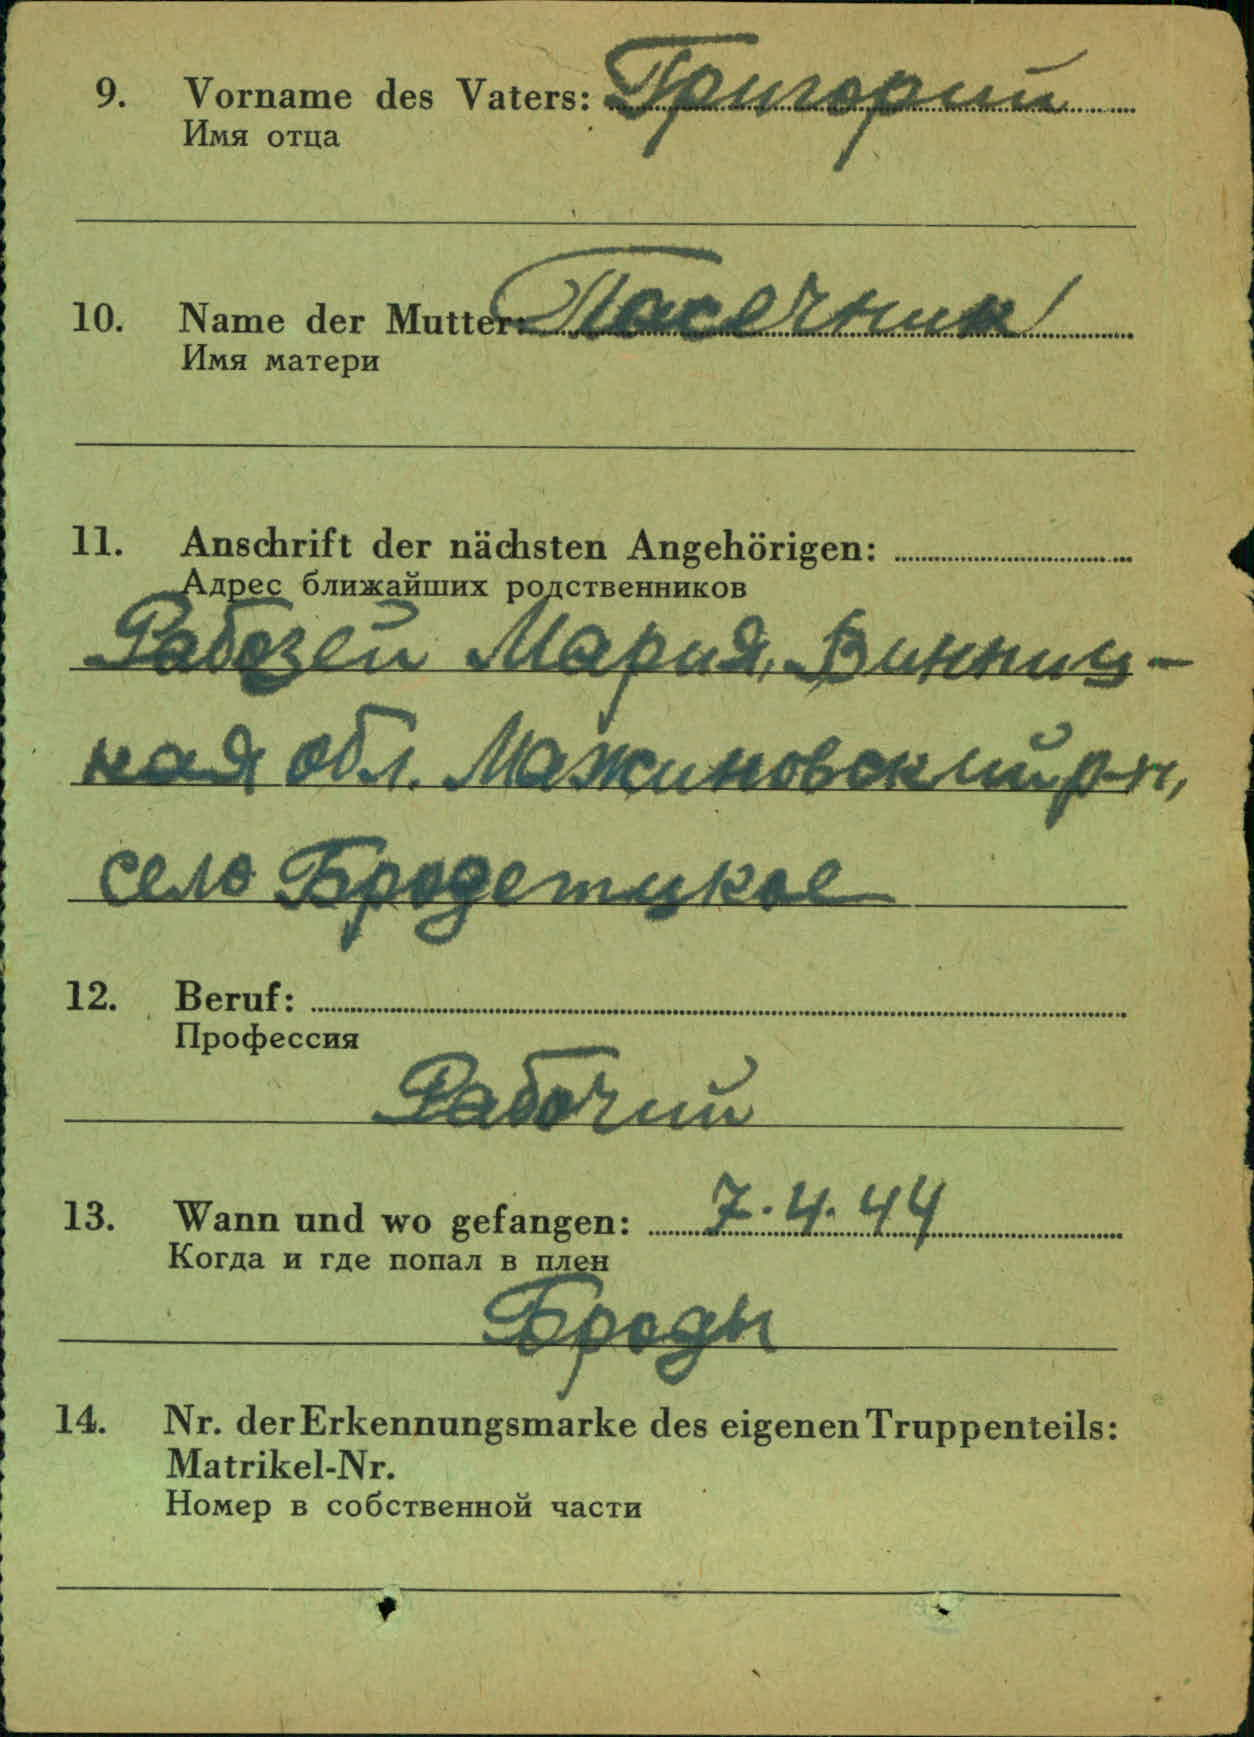 9. Vorname des Vaters: Григорий
Имя отца
10. Name der Mutter: Пасечник
Имя матери
11. Anschrift der nächsten Angehörigen:
Адрес ближайших родственников
Рабозей Мария, Винниц-
кая обл. Мажиновский р-н,
село Бродетцкое
12. Beruf:
Профессия
Рабочий
13. Wann und wo gefangen: 7.4.44
Когда и где попал в плен
Броды
14. Nr. der Erkennungsmarke des eigenen Truppenteils:
Matrikel-Nr.
Номер в собственной части